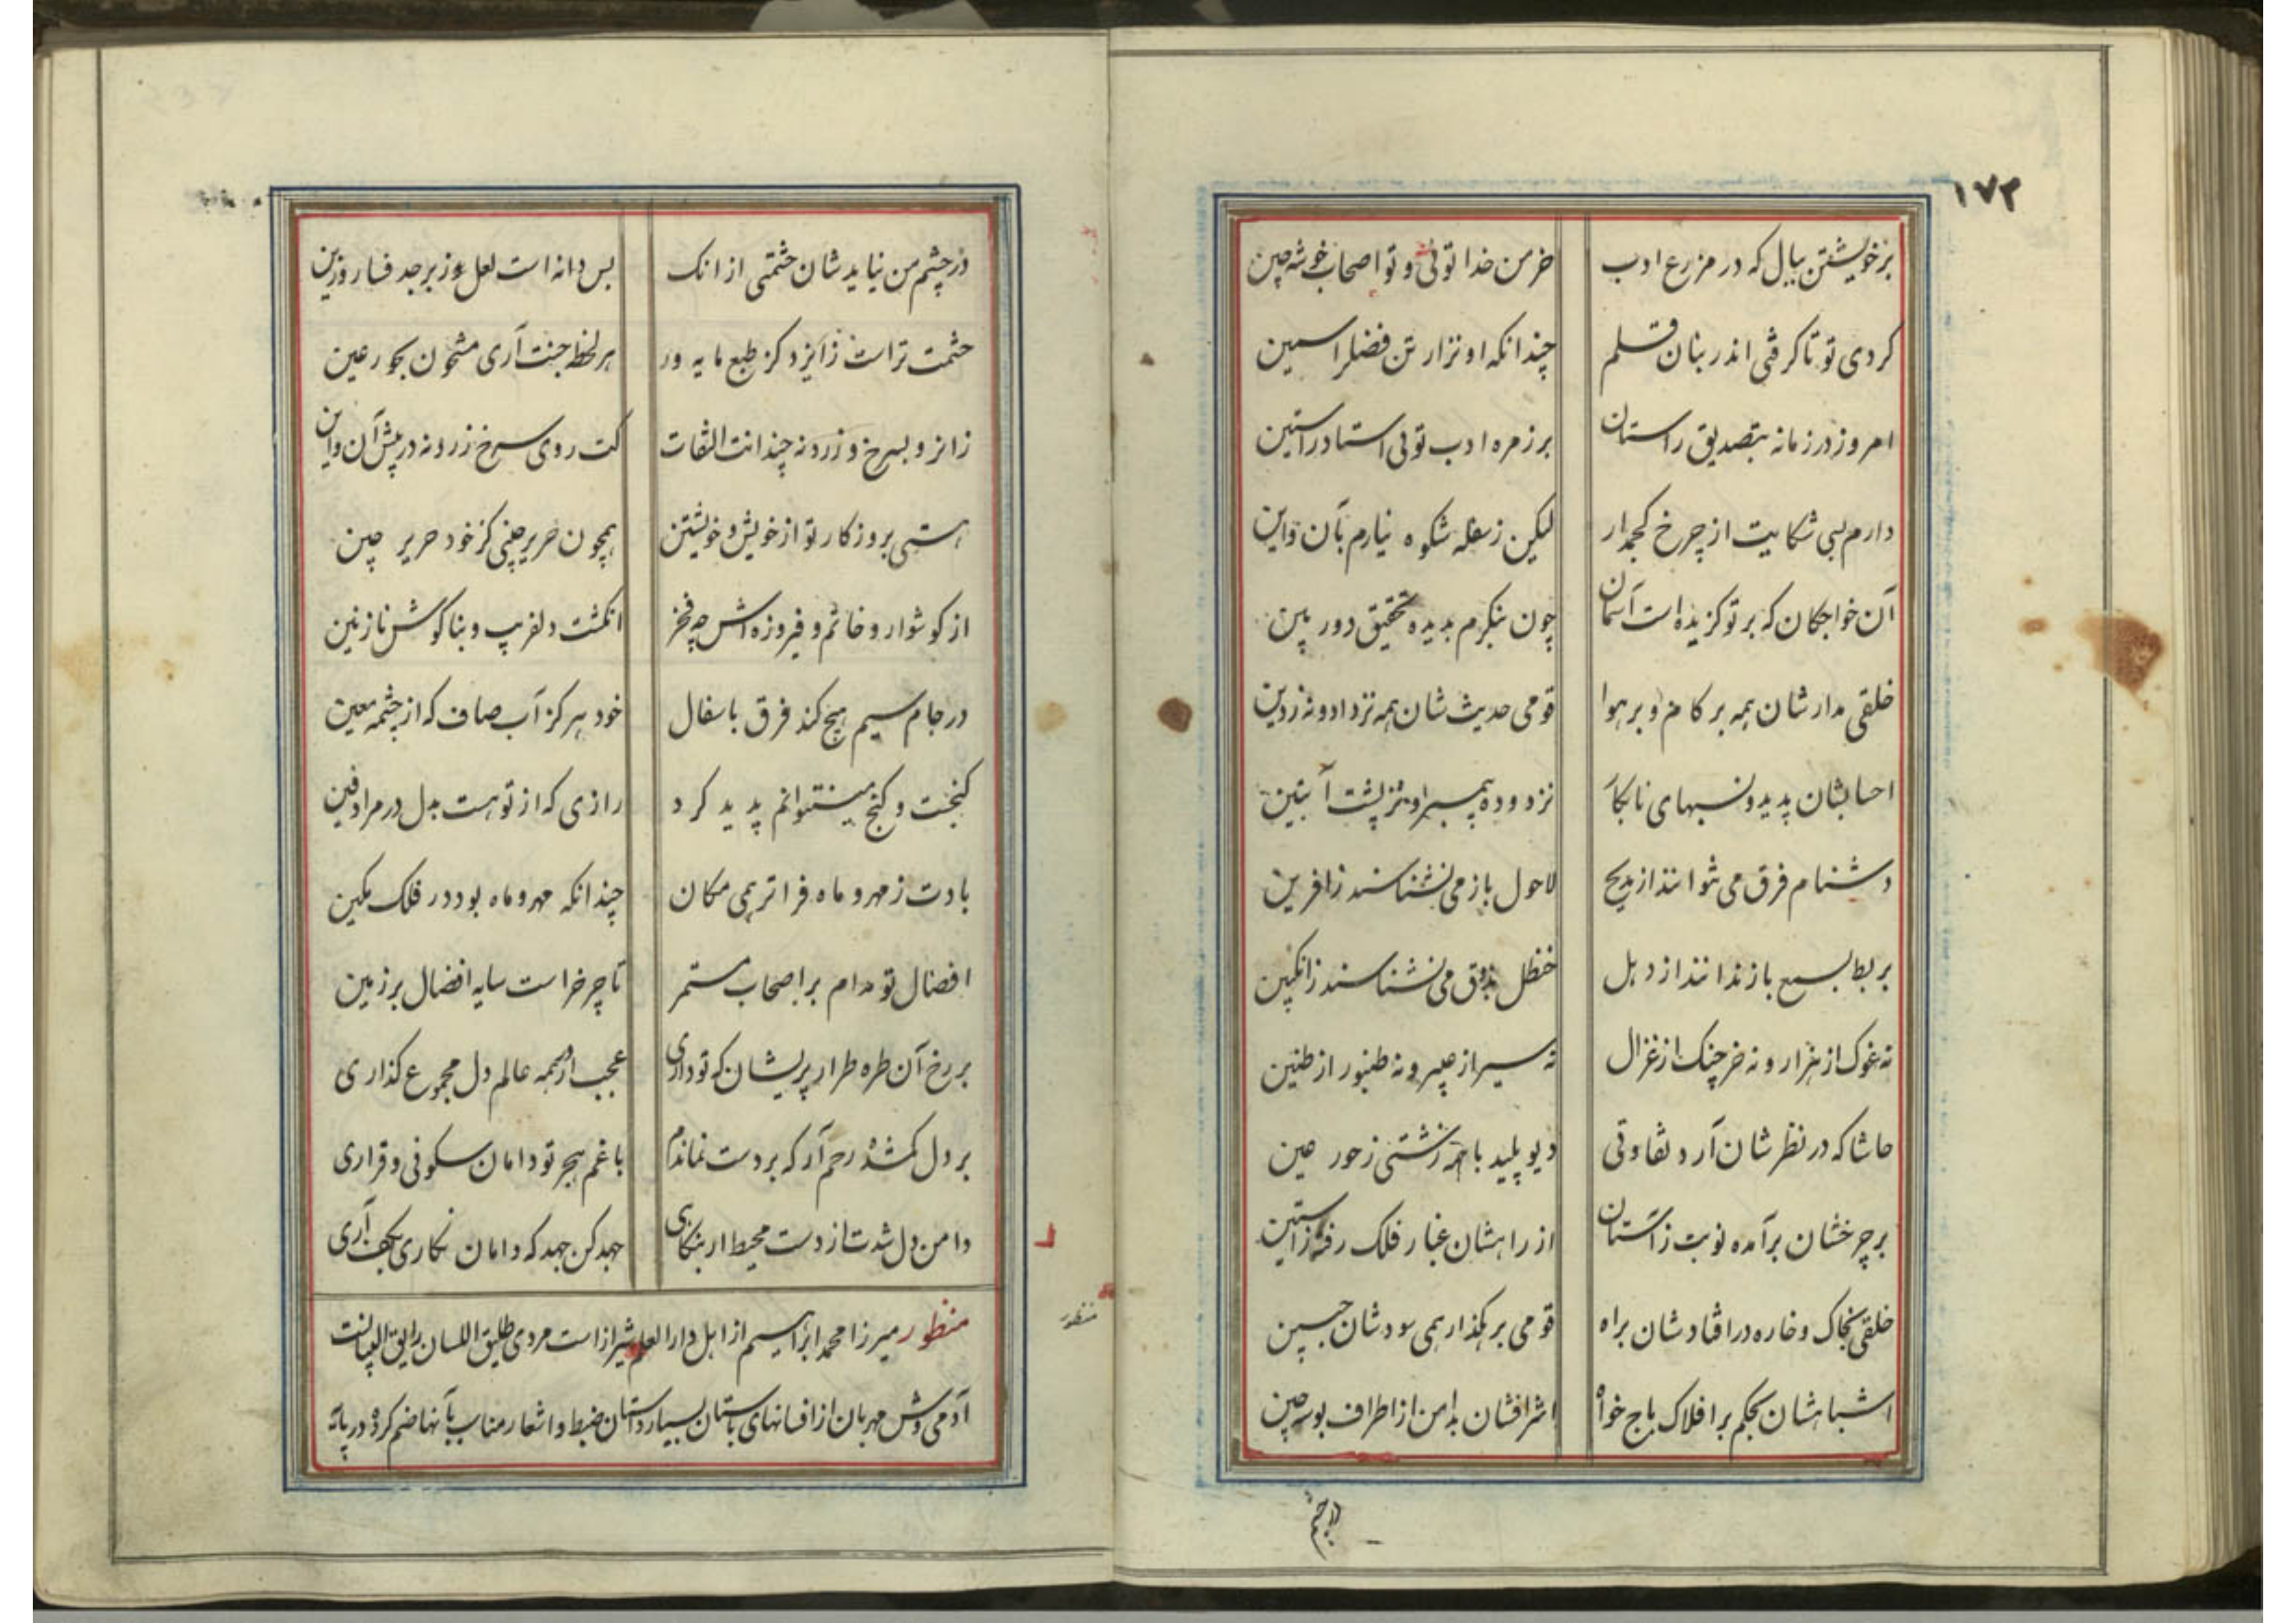 ۱۷۲
بر خویشتن ببال که در مزرع ادب خرمن خدا توئی و تو اصحاب خوشه چین
کردی تو تا گرفتی اندر بنان قلم چندانکه او نزار تن فضل را سمین
امروز در زمانه بتصدیق راستان بر زمره ادب توئی استاد راستین
دارم بسی شکایت از چرخ کجمدار لیکن ز سفله شکوه نیارم بآن و این
آن خواجکان که بر تو کزیده است آسمان چون بنکرم بدیده تحقیق دور بین
خلقی مدارشان همه بر کام و بر هوا قومی حدیث شان همه نز داد و نه ز دین
احسابشان پدید و نسبهای نابکار نز دوده پیمبر و نز پشت آبتین
دشنام فرق می نتوانند از مدیح لاحول باز می نشناسند زافرین
بربط بسمع باز ندانند از دهل حنظل بذوق می نشناسند زانکبین
نه غوک از هزار و نه خرچنک از غزال نه سیر از عبیر و نه طنبور از طنین
حاشا که در نظر شان آرد تفاوتی دیو پلید با همه زشتی ز حور عین
بر چرخشان برآمده نوبت ز آستان از راهشان غبار فلک رفته زاستین
خلقی بخاک و خاره در افتادشان براه قومی بر هکذار همی سودشان جبین
اشباهشان بحکم بر افلاک باج خواه اشرافشان بدامن از اطراف بوسه چین
در چشم
در چشم من نیاید شان حشمتی از انک بس دانه است لعل و زبرجد فسار و زین
حشمت تراست زایزد کز طبع مایه ور هر لحظه جنت آری مشحون بحور عین
زانرو بسرخ و زرد نه چندانت التفات کت روی سرخ زرد نه در پیش آن و این
هستی بروزکار تو از خویش و خویشتن همچون حریر چینی کز خود حریر چین
از کوشوار و خاتم و فیروزه اش چه فخر انکشت دلفریب و بناکوش نازنین
در جام سیم هیچ کند فرق با سفال خود هرکز آب صاف که از چشمه معین
کنجت و کنج می نتوانم پدید کرد رازی که از تو هست بدل در مرا دفین
بادت ز مهر و ماه فراتر همی مکان چندانکه مهر و ماه بود در فلک مکین
افضال تو مدام بر اصحاب مستمر تا چرخ راست سایه افضال بر زمین
بر رخ آن طره طرار پریشان که تو داری عجب ار در همه عالم دل مجموع گذاری
بر دل کمشده رحم آر که بر دست نماندم با غم هجر تو دامان سکونی و قراری
دامن دل شدت از دست محیط ار بنکاری جهد کن جهد که دامان نکاری بکف آری
منظور میرزا محمد ابراهیم از اهل دار العلم شیراز است مردی طلیق اللسان رایق البیانست
آدمی وش مهربان از افسانهای باستان بسیار داستان ضبط و اشعار مناسب بآنها ضم کرده در پایه
منظور